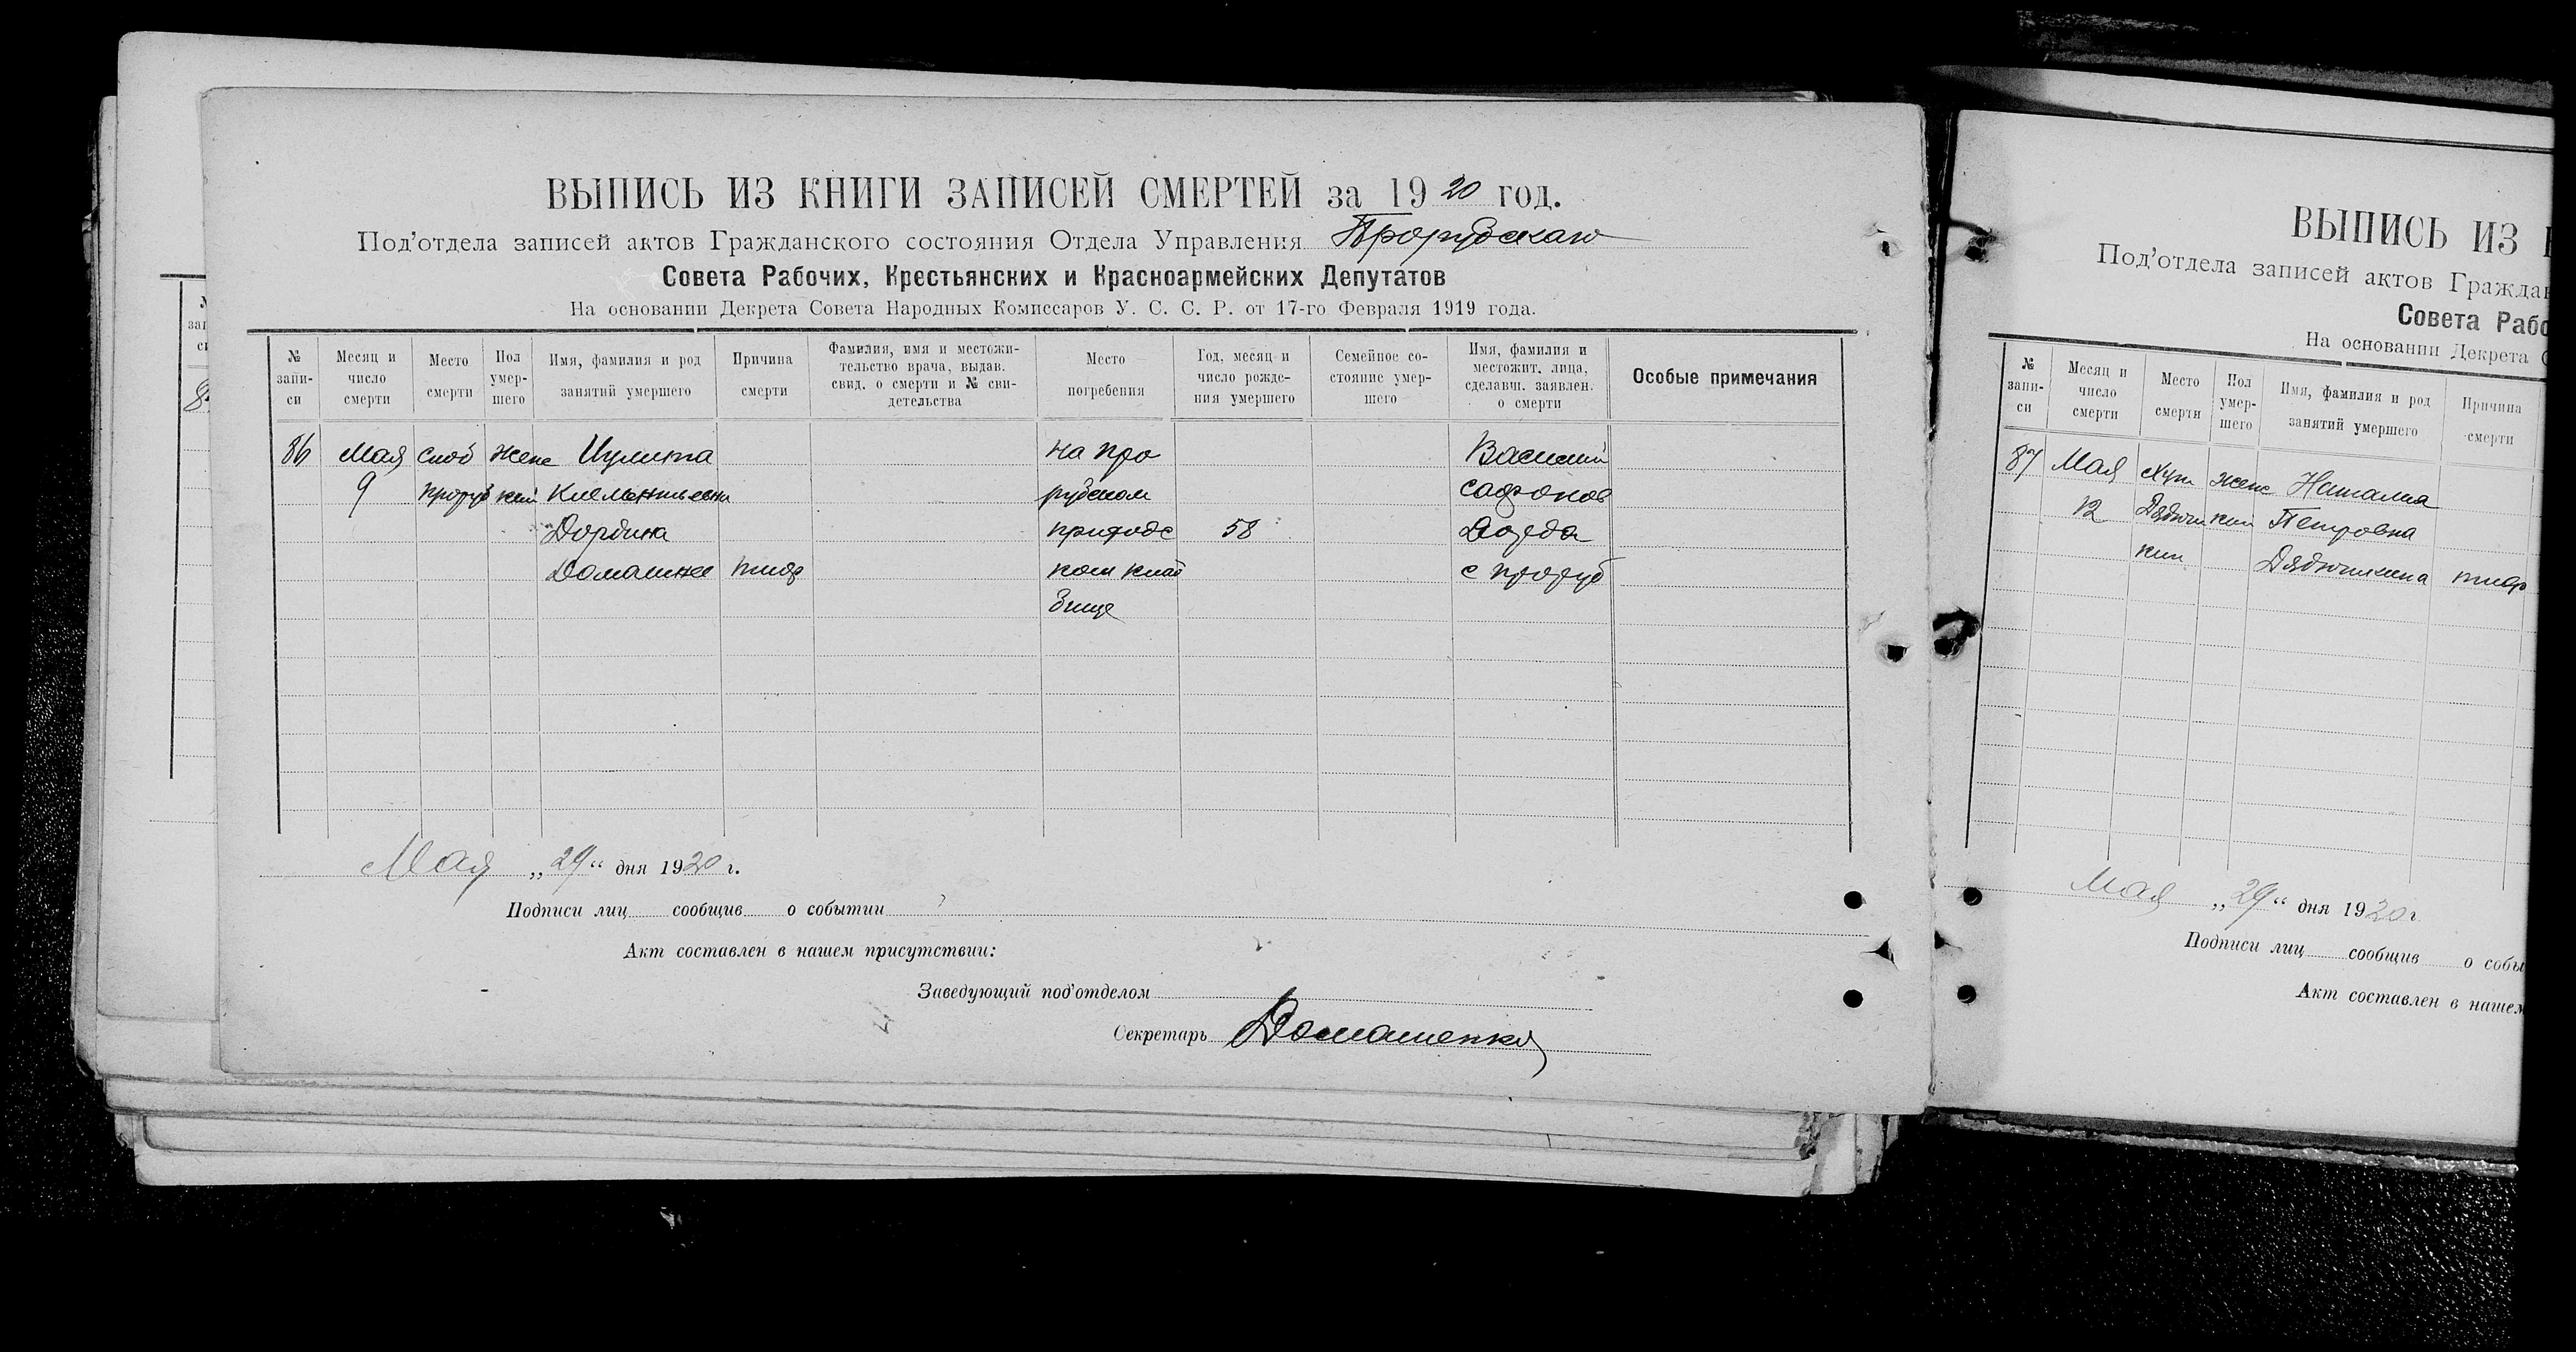 ВЫПИСЬ ИЗ КНИГИ ЗАПИСЕЙ СМЕРТЕЙ за 1920 год.
Под'отдела записей актов Гражданского состояния Отдела Управления Прорубскаго
Совета Рабочих, Крестьянских и Красноармейских Депутатов
На основании Декрета Совета Народных Комиссаров У. С. С. Р. от 17-го Февраля 1919 года.
№ записи
Месяц и число смерти
Место смерти
Пол умершего
Имя, фамилия и род занятий умершего
Причина смерти
Фамилия, имя и местожительство врача, выдав. свид. о смерти и № свидетельства
Место погребения
Год, месяц и число рождения умершего
Семейное состояние умершего
Имя, фамилия и местожит. лица, сделавш. заявлен. о смерти
Особые примечания
86 Мая слоб женс Иулита на про Василий
9 проруб кий Климентьевна рубском Сафонов
приходс 58
Домашнее тиф ком клад с проруб
бище
Мая „29“ дня 1920 г.
Подписи лиц сообщив о событии
Акт составлен в нашем присутствии:
Заведующий под'отделом
Секретарь Домашенко
ВЫПИСЬ ИЗ
Под'отдела записей актов Граждан
Совета Рабо
На основании Декрета
№ записи
Месяц и число смерти
Место смерти
Пол умершего
Имя, фамилия и род занятий умершего
Причина смерти
87 Мая Хут женс Наталиа
12 Дядюш кий Петровна
кин Дядюшкина тиф
Мая „29“ дня 1920 г.
Подписи лиц сообщив о собы
Акт составлен в нашем